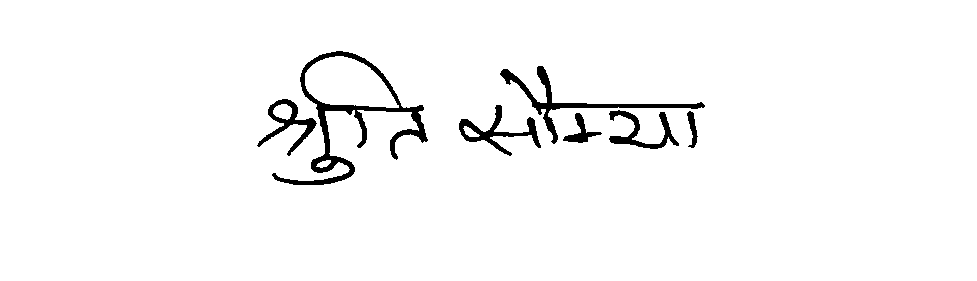 श्रुति सौम्या